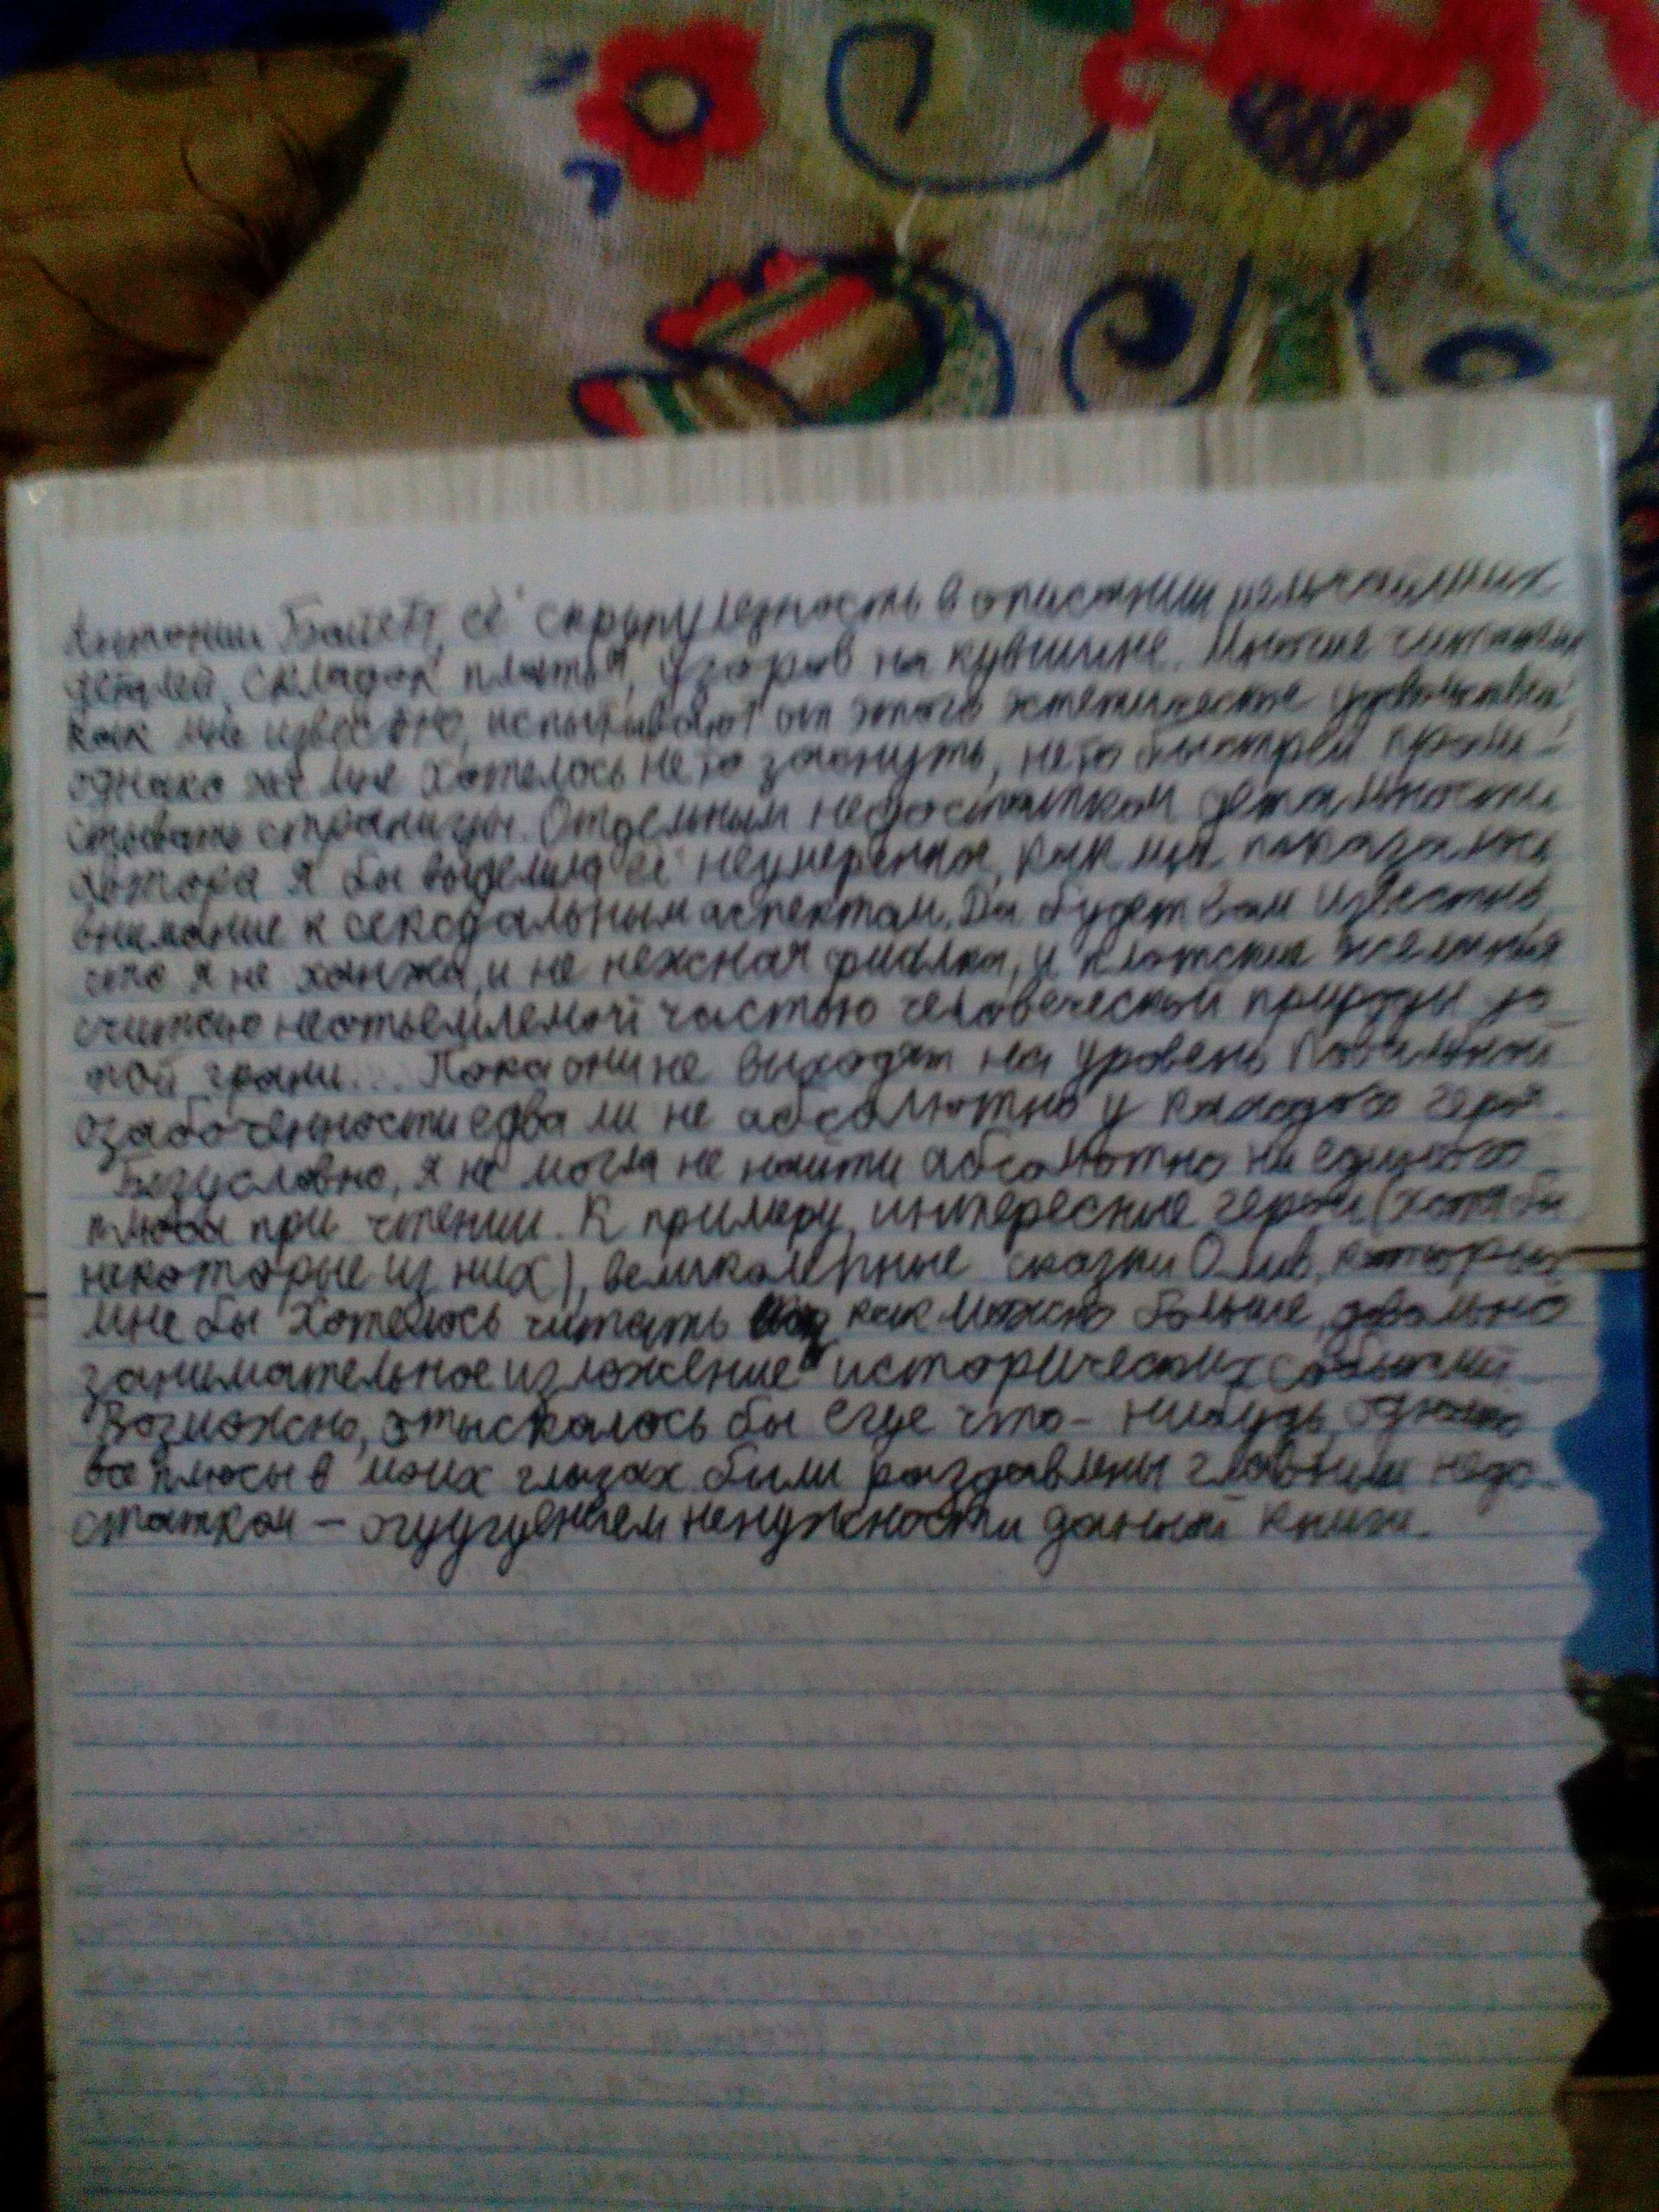 Антонии Байетт, её скрупулезность в описании мельчайших
деталей, складок платья, узоров на кувшине. Многие читатели,
как мне известно, испытывают от этого эстетическое удовольствие,
однако же мне хотелось не то заснуть, не то быстрей проли-
стывать страницы. Отдельным недостатком детальности
автора я бы выделила её неумеренное, как мне показалось
внимание к сексуальным аспектам. Да будет вам известно,
что я не ханжа, и не нежная фиалка, и плотские желания
считаю неотъемлемой частью человеческой природы до
той грани... Пока они не выходят на уровень повальной
озабоченности едва ли не абсолютно у каждого героя.
Безусловно, я не могла не найти абсолютно ни единого
плюса при чтении. К примеру, интересные герои (хотя бы
некоторые из них), великолепные сказки Олив, которые
мне бы хотелось читать как можно больше, довольно
занимательное изложение исторических событий.
Возможно, отыскалось бы еще что-нибудь, однако
все плюсы в моих глазах были раздавлены главным недо-
статком — ощущением ненужности данной книги.